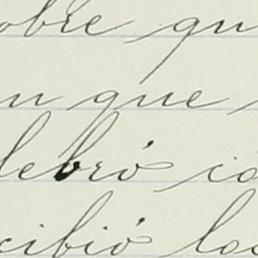 obre qu
n que
lebró co
cibió los